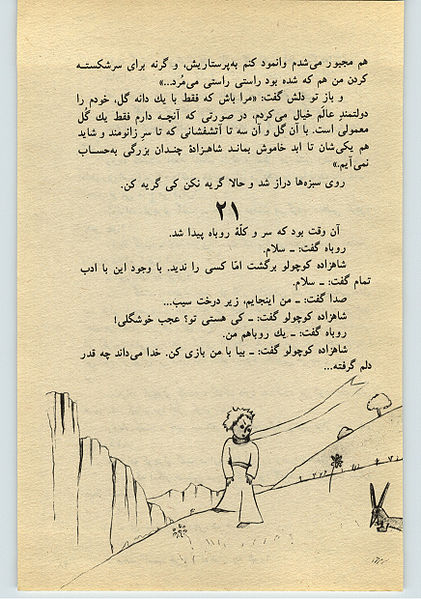 هم مجبور می‌شدم وانمود کنم به‌پرستاریش، و گرنه برای سرشکسته
کردن من هم که شده بود راستی راستی می‌مُرد...»
و باز تو دلش گفت: «مرا باش که فقط با یك دانه گل، خودم را
دولتمندِ عالَم خیال می‌کردم، در صورتی که آنچه دارم فقط یك گُل
معمولی است. با آن گل و آن سه تا آتشفشانی که تا سر زانومند و شاید
هم یکی‌شان تا ابد خاموش بماند شاهزادهٔ چندان بزرگی به‌حساب
نمی‌آیم.»
روی سبزه‌ها دراز شد و حالا گریه نکن کی گریه کن.
۲۱
آن وقت بود که سر و کلّهٔ روباه پیدا شد.
روباه گفت: ـ سلام.
شاهزاده کوچولو برگشت امّا کسی را ندید. با وجود این با ادب
تمام گفت: ـ سلام.
صدا گفت: ـ من اینجایم، زیر درخت سیب...
شاهزاده کوچولو گفت: ـ کی هستی تو؟ عجب خوشگلی!
روباه گفت: ـ یك روباهم من.
شاهزاده کوچولو گفت: ـ بیا با من بازی کن. خدا می‌داند چه قدر
دلم گرفته...